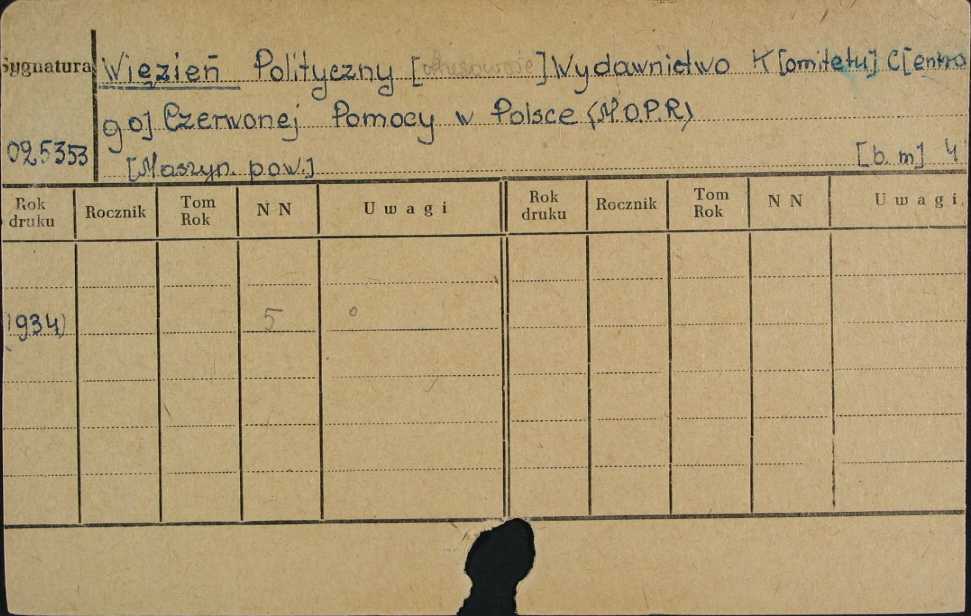 Sygnatura
Więzień Polityczny [ ] Wydawnictwo K[omitetu] C[entra
go] Czerwonej Pomocy w Polsce (M.O.P.R)
025353
[Maszyn. pow.] [b. m] 4
Rok druku Rocznik Tom Rok N N Uwagi Rok druku Rocznik Tom Rok N N Uwagi
(1934) 5 °